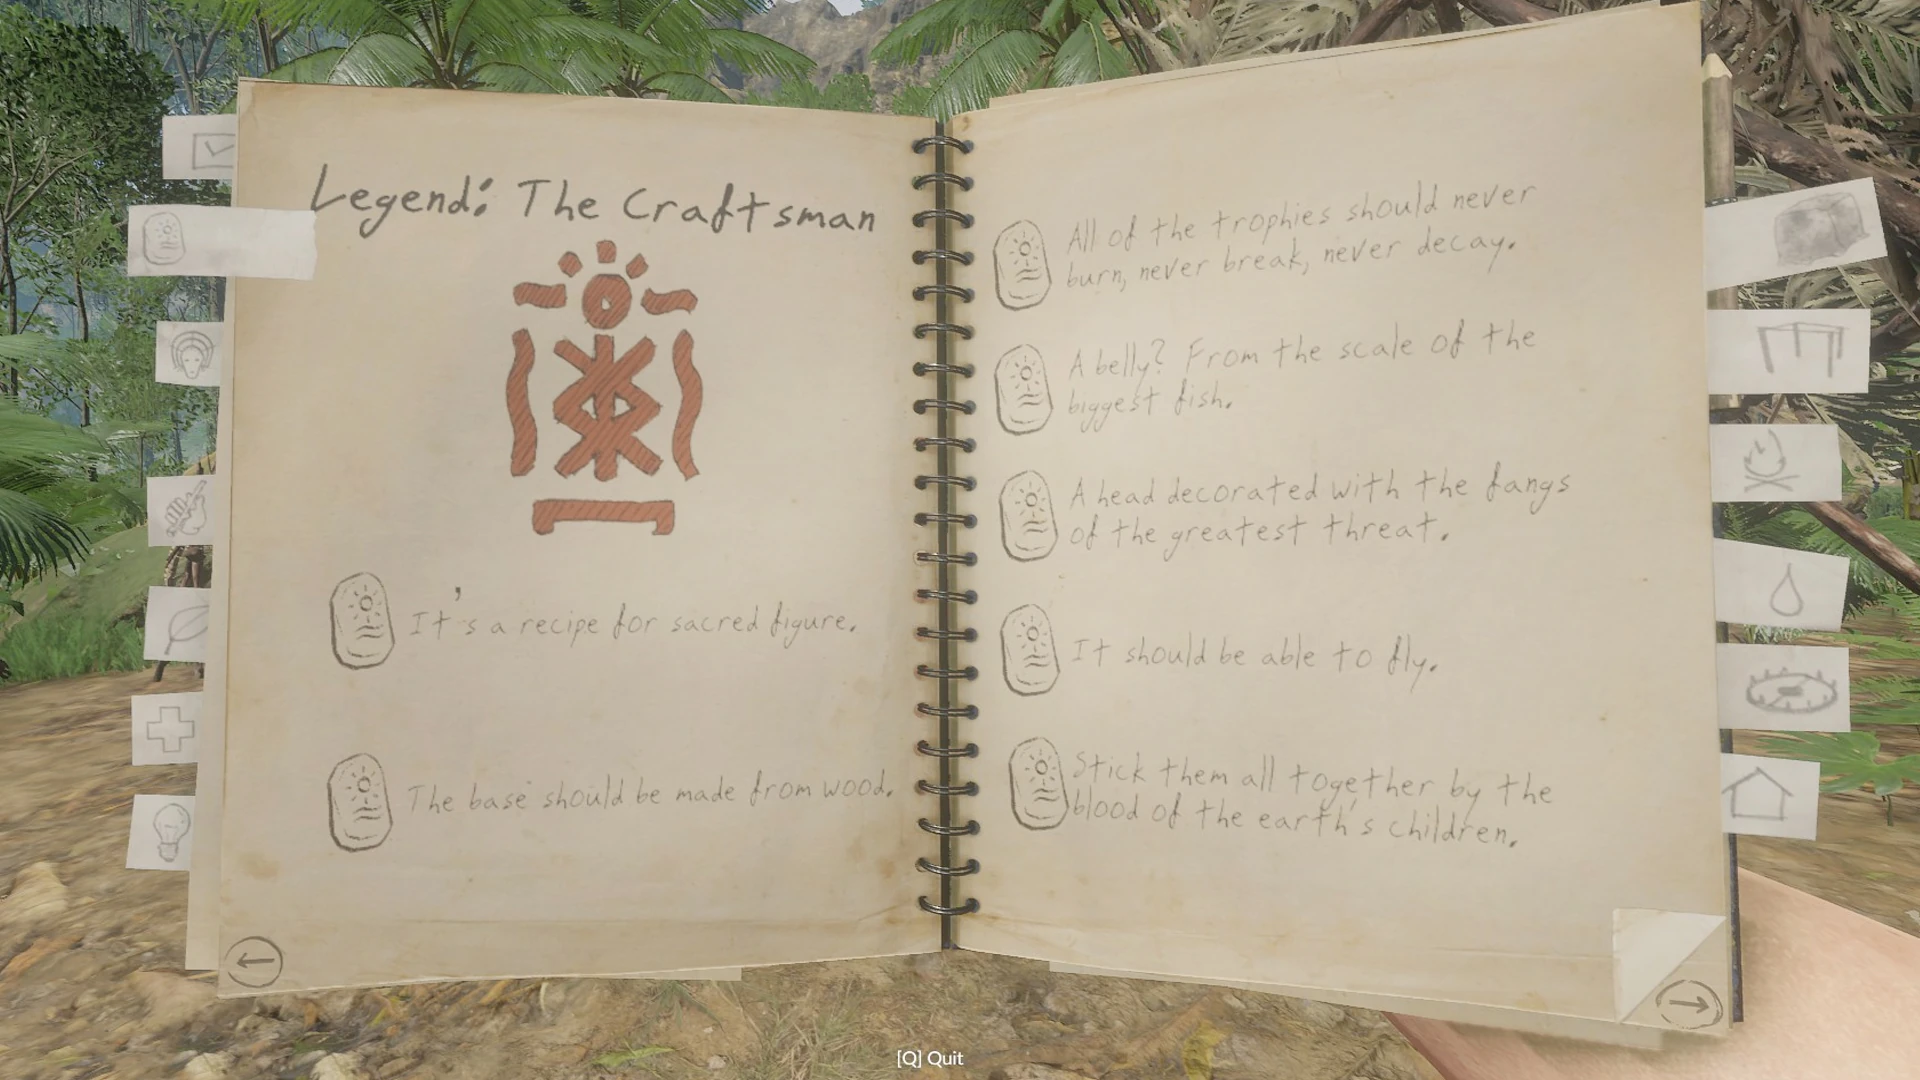 Legend: The Craftsman
It's a recipe for sacred figure.
The base should be made from wood.
All of the trophies should never
burn, never break, never decay.
A belly? From the scale of the
biggest fish.
A head decorated with the fangs
of the greatest threat.
It should be able to fly.
Stick them all together by the
blood of the earth's children.
[Q] Quit